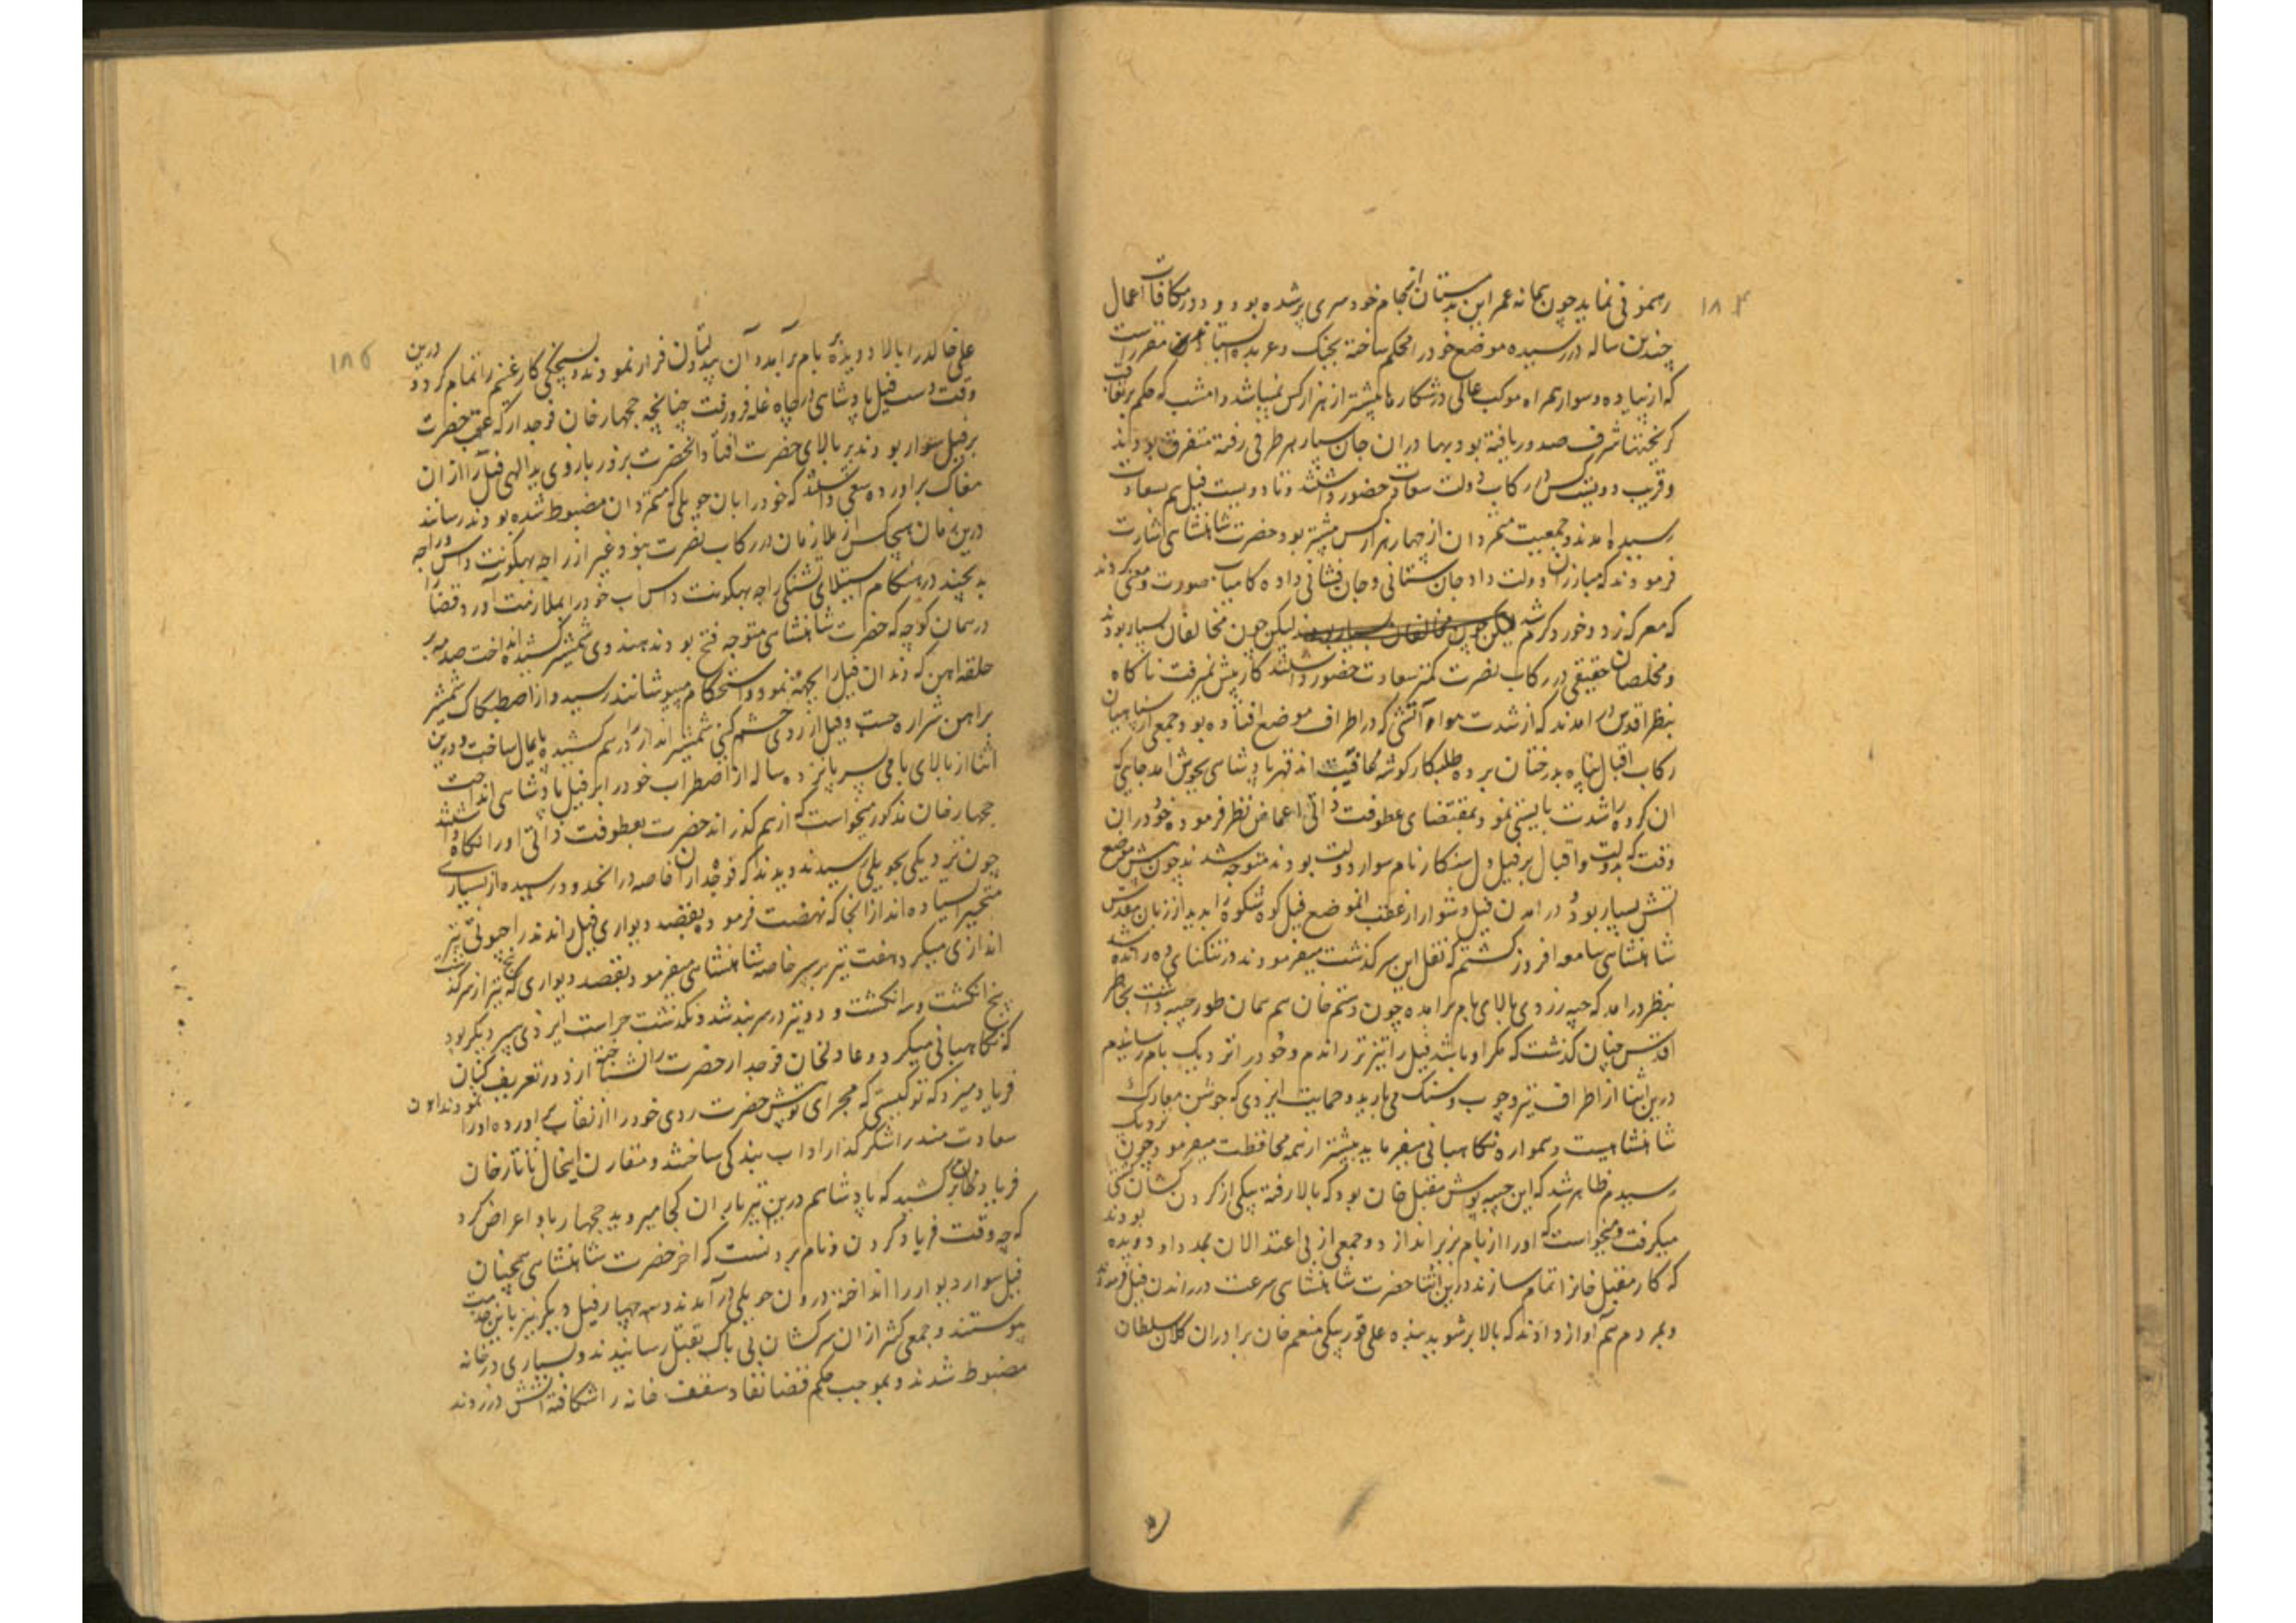 ۱۸۴
رهمونی نماید چون پیمانه عمر این بدمستان انجام خودسری پر شده بود و در مکافات اعمال
چندین ساله در رسیده موضع خود را محکم ساخته بجنگ و عربده مقررست
که از پیاده و سوار همراه موکب عالی در شکارها بیشتر از هزار کس نمیباشد و امشب که حکم برتعاقب
گریختها شرف صدور یافته بود بهادران جان سپار هر طرفی رفته متفرق بودند
و قریب دویست کس در رکاب دولت سعادت حضور داشتند و تا دویست فیل هم بسعادت
رسیده آمدند و جمعیت متمردان از چهار هزار کس بیشتر بود حضرت شاهنشاهی اشارت
فرمودند که مبارزان دولت داد جان ستانی و جان فشانی داده کامیاب صورت و معنی گردند
که معرکه زد و خورد گرم شد لیکن چون مخالفان بسیار بودند لیکن چون مخالفان بسیار بودند
و مخلصان حقیقی در رکاب نصرت کمتر سعادت حضور داشتند کار پیش نمیرفت ناگاه
بنظر اقدس در آمدند که از شدت هوا و آتشی که در اطراف موضع افتاده بود جمعی از سپاهیان
رکاب اقبال پناه بدرختان برده طلبکار گوشه عافیت اند قهر پادشاهی بجوش آمد جای
آن گروه را شدت بایستی نمود بمقتضای عطوفت ذاتی اغماض نظر فرموده خود در آن
وقت که بدولت و اقبال بر فیل دلسنکار نام سوار دولت بودند متوجه شدند چون پیش موضع
آتش بسیار بود و در آمدن فیل دشوار از عقب آن موضع فیل کوه شکوه را بدید از زبان مقدس
شاهنشاهی سامعه افروز گشتم که نقل این سرگذشت میفرمودند در تنگنای ده رانده شد
بنظر در آمد که جیبه زردی بالای بام برآمده چون دستم خان هم همان طور جیبه داشت بخاطر
اقدس چنان گذشت که مگر او باشد فیل را تیزتر راندم و خود را نزدیک بام رسانیدم
درین اثنا از اطراف تیر و چوب و سنگ می بارید و حمایت ایزدی که جوشن معارک
شاهنشاهیست و همواره نگاهبانی میفرماید بیشتر از همه محافظت میفرمود چون نزدیک
رسیدم ظاهر شد که این جیبه پوش مقبل خان بود که بالا رفته بیکی از گردن کشان کشتی
میگرفت و میخواست که او را از بام بزیر اندازد و جمعی از بی اعتدالان بمدد او دویده بودند
که کار مقبل خانرا تمام سازند درین اثنا حضرت شاهنشاهی سرعت در راندن فیل فرمودند
و بمردم هم آواز دادند که بالا برشوید بنده علی قوربیکی منعم خان برادران کلان سلطان
۱۸۵
علی خالدرا بالا دویده بر بام برآمد و آن بیدولتان فرار نمودند و بسبکی کار غنیم را تمام کرد و درین
وقت دست فیل پادشاهی در چاه غله فرو رفت چنانچه ججهار خان فوجدار که عقب حضرت
بر فیل سوار بودند بر بالای حضرت افتاد آنحضرت بزور بازوی ید الهی فیل را از آن
مغاک برآورده سعی داشتند که خود را بآن حویلی که متمردان مضبوط شده بودند رسانند
درین زمان هیچکس از ملازمان در رکاب نصرت نبود غیر از راجه بهگونت داس و راجه
بدیچند در هنگام استیلای تشنگی راجه بهگونت داس آب خود را بملازمت آورد قضا را
در همان کوچه که حضرت شاهنشاهی متوجه فتح بودند هندوی شمشیر کشیده انداخت صدمه بر
حلقه آهن که دندان فیل را بجهته نمود و استحکام میپوشانند رسید و از اصطکاک شمشیر
بر آهن شراره جست و فیل از روی خشم گین شمشیر انداز را در هم کشیده پایمال ساخت و درین
اثنا از بالای بامی پسر پانزده ساله از اضطراب خود را بر فیل پادشاهی انداخت
ججهار خان مذکور میخواست که از هم گذراند حضرت بعطوفت ذاتی او را نگاه داشتند
چون نزدیکی بحویلی رسیدند دیدند که فوجداران خاصه در آنحدود رسیده از بسیاری
متحیر ایستاده اند از آنجا که نهضت فرمود بقصد دیواری فیل راندند راجپوتی تیر
اندازی میکرد هفت تیر بر سپر خاصه شاهنشاهی میفرمود بقصد دیواری که پنج تیر از سر گذشت
پنج انگشت و سه انگشت و دو تیر در سپر بند شد و نگذشت حراست ایزدی سپر دیگر بود
که نگاهبانی میکرد و عادلخان فوجدار حضرت را نشناخته از دور تعریف کنان
فریاد میزد که تو کیستی که مجرای تو پیش حضرت روی خود را از نقاب برآورده او را نمودند او آن
سعادت مند را شکر گذار آداب بندگی ساختند و مقارن اینحال تاتار خان
فریاد کنان کشید که پادشاهم درین تیرباران کجا میروید ججهار باو اعراض کرد
که چه وقت فریاد کردن و نام بردنست که آخر حضرت شاهنشاهی همچنان
فیل سوار دیوار را انداخته درون حویلی در آمدند و سه چهار فیل دیگر نیز باین خدمت
پیوستند و جمعی کثیر از آن سرکشان بی باک بقتل رسانیدند و بسیاری در خانه
مضبوط شدند و بموجب حکم قضا نفاد سقف خانه را شکافته آتش در زدند